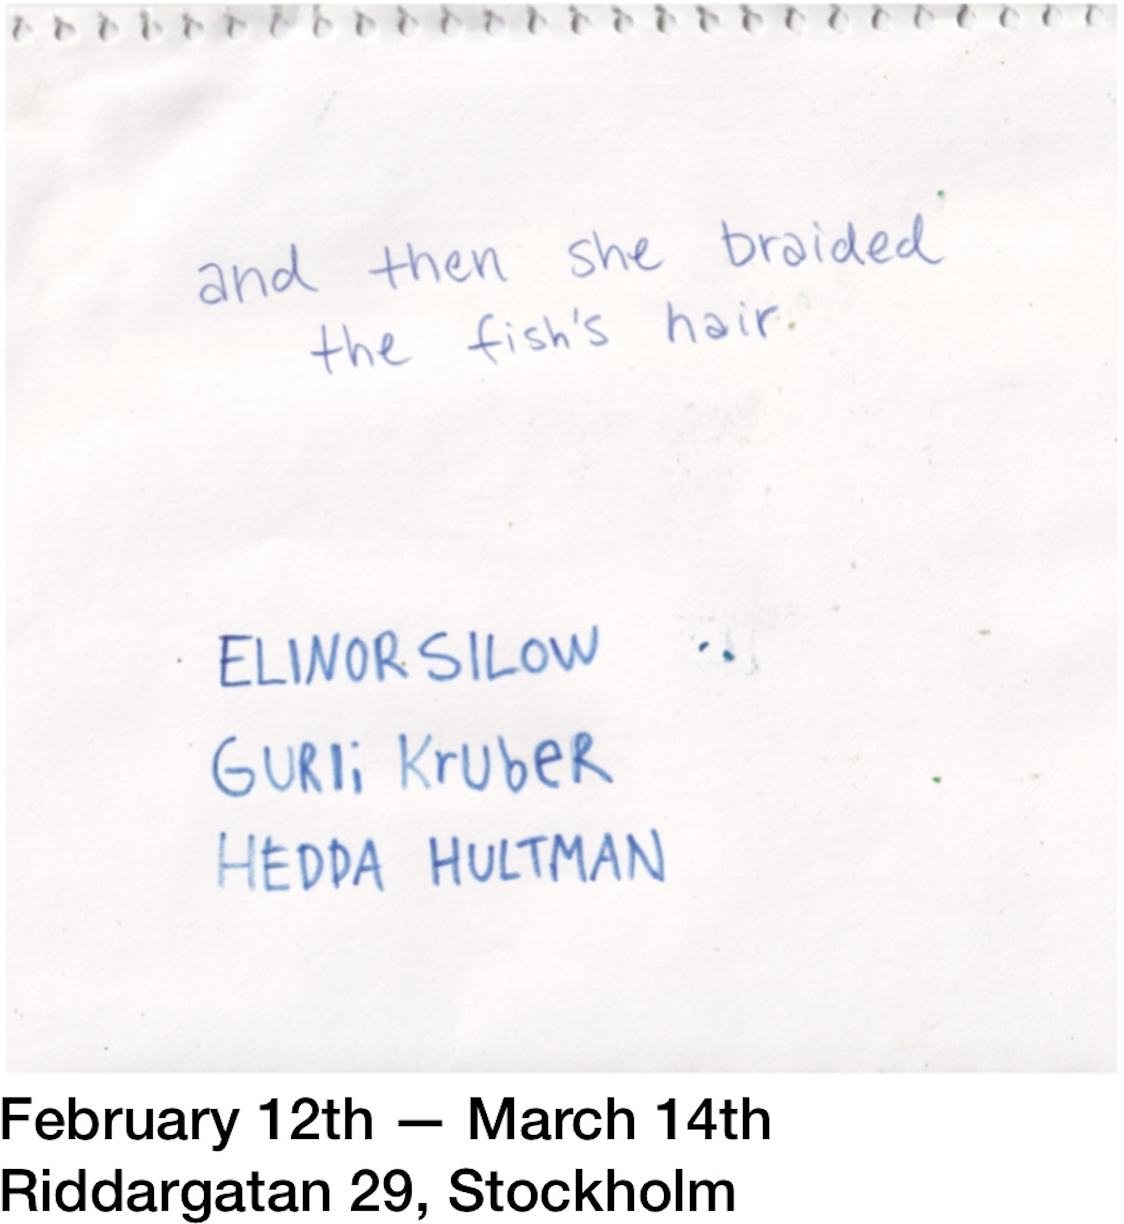 and then she braided
the fish's hair.
ELINOR SILOW
GURli KrUbeR
HEDDA HULTMAN
February 12th — March 14th
Riddargatan 29, Stockholm